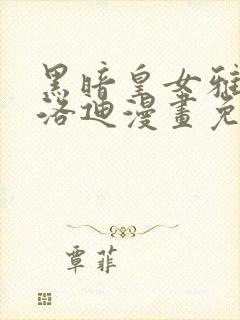 黑暗皇女雅
洛迪漫畫免
覃菲